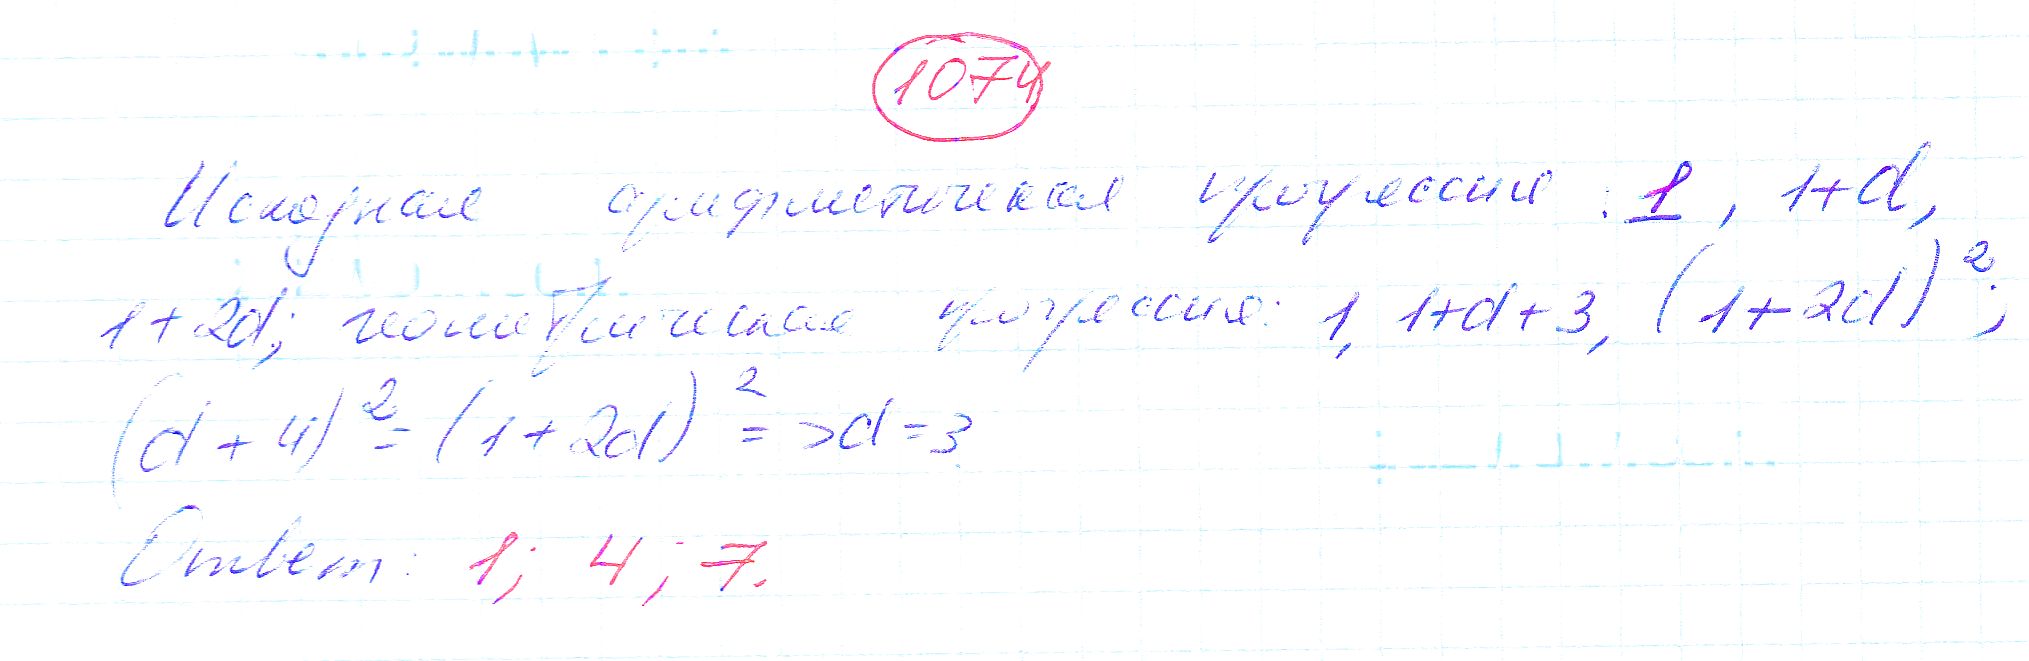 1074
Исходная арифметическая прогрессия: 1, 1+d,
1+2d; геометрическая прогрессия: 1, 1+d+3, (1+2d)²;
(d+4)² = (1+2d)² => d=3
Ответ: 1; 4; 7.